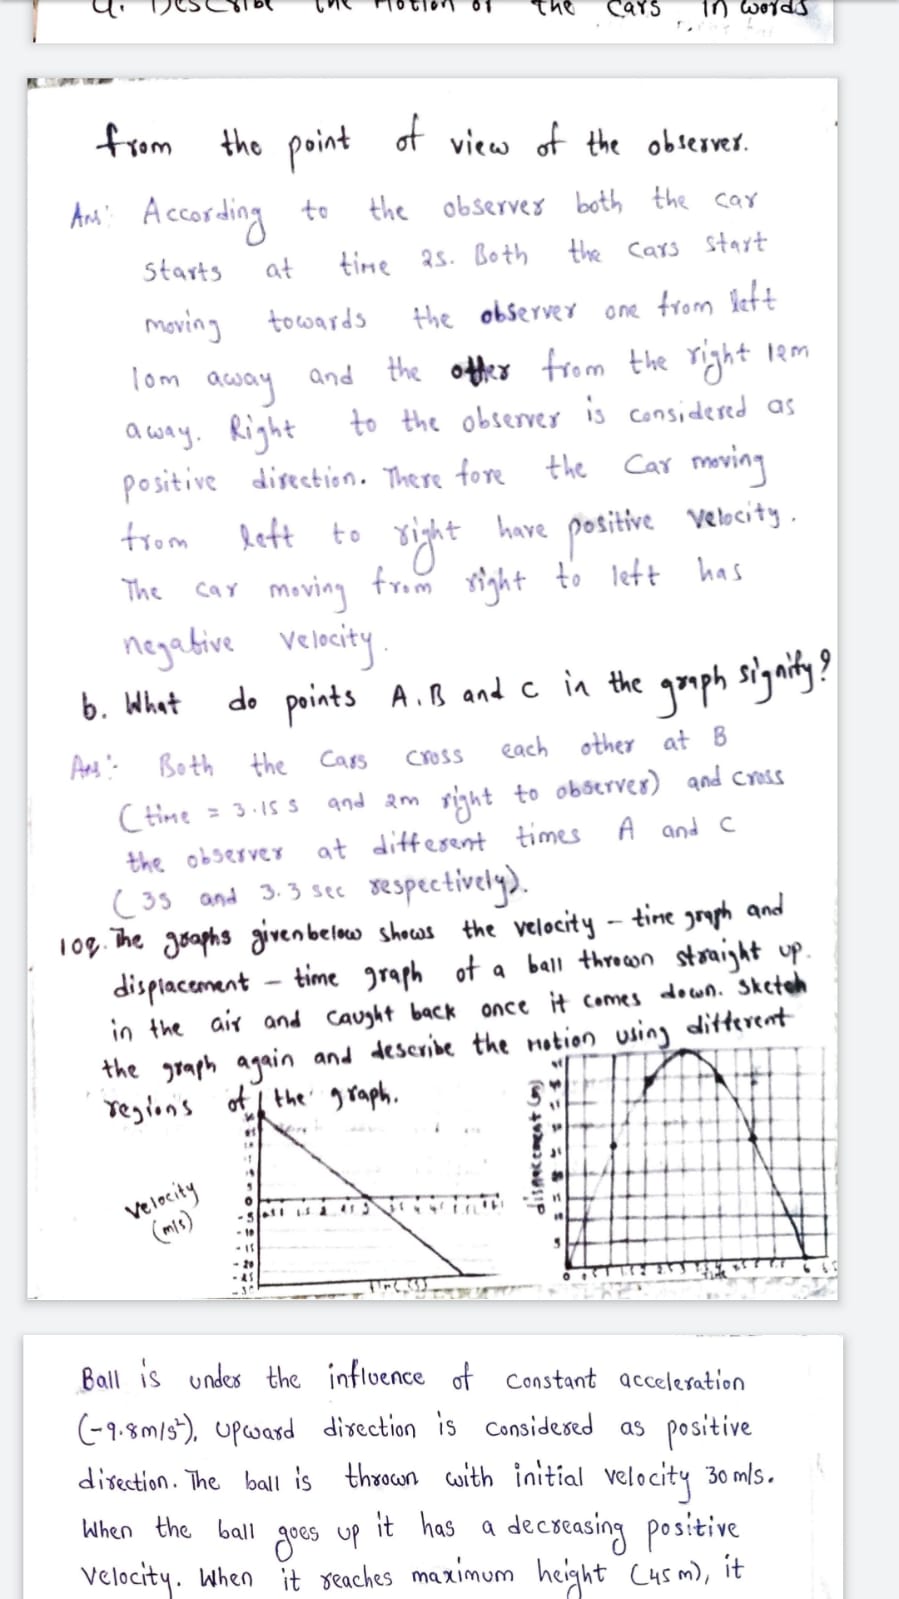 a. Describe the motion of the cars in words
from the point of view of the observer.
Ans: According to the observer both the car
starts at time 2s. Both the cars start
moving towards the observer one from left
10m away and the other from the right 12m
away. Right to the observer is considered as
positive direction. There fore the Car moving
from left to right have positive velocity.
The car moving from right to left has
negative velocity.
b. What do points A, B and C in the graph signify?
Ans:- Both the Cars cross each other at B
(time = 3.15 s and 2m right to observer) and cross
the observer at different times A and C
(3s and 3.3 sec respectively).
10Q. The graphs given below shows the velocity - time graph and
displacement - time graph of a ball thrown straight up
in the air and caught back once it comes down. Sketch
the graph again and describe the motion using different
regions of the graph.
velocity
(m/s)
0
-5
-10
-15
-20
-25
Time (s)
displacement
5
0
Time
6
Ball is under the influence of constant acceleration
(-9.8m/s²), upward direction is considered as positive
direction. The ball is thrown with initial velocity 30 m/s.
When the ball goes up it has a decreasing positive
velocity. When it reaches maximum height (45 m), it